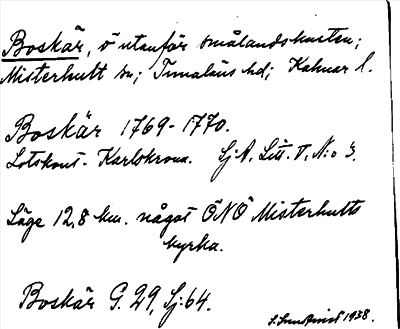 Boskär, ö utanför smålandskusten;
Misterhult sn; Tunaläns hd; Kalmar l.
Boskär 1769-1770.
Lotskont. Karlskrona. Sj.A. Litt. V, N:o 3.
Läge 12,8 km. något ÖNÖ Misterhults
kyrka.
Boskär G. 29, Sj: 64.
1938.